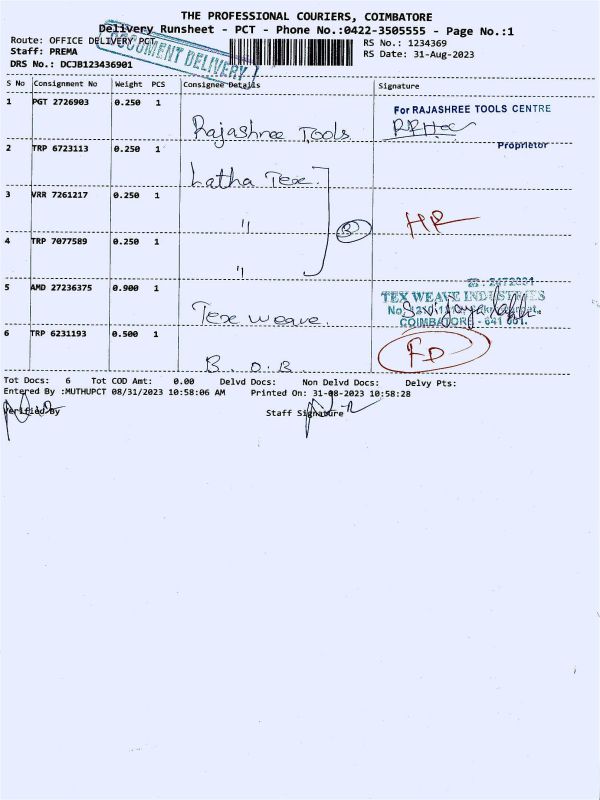 THE PROFESSIONAL COURIERS, COIMBATORE
Delivery Runsheet - PCT - Phone No.:0422-3505555 - Page No.:1
Route: OFFICE DELIVERY PCT
RS No.: 1234369
Staff: PREMA
RS Date: 31-Aug-2023
DRS No.: DCJB123436901
DOCUMENT DELIVERY
S No Consignment No Weight PCS Consignee Details Signature
1 PGT 2726903 0.250 1 Rajashree Tools
For RAJASHREE TOOLS CENTRE
Proprietor
2 TRP 6723113 0.250 1 Latha Tex.
3 VRR 7261217 0.250 1 "
4 TRP 7077589 0.250 1 "
5 AMD 27236375 0.900 1 Tex weave
TEX WEAVE INDUSTRIES
COIMBATORE - 641 001.
6 TRP 6231193 0.500 1 B.O.B.
FD
Tot Docs: 6 Tot COD Amt: 0.00 Delvd Docs: Non Delvd Docs: Delvy Pts:
Entered By :MUTHUPCT 08/31/2023 10:58:06 AM Printed On: 31-08-2023 10:58:28
Verified By Staff Signature